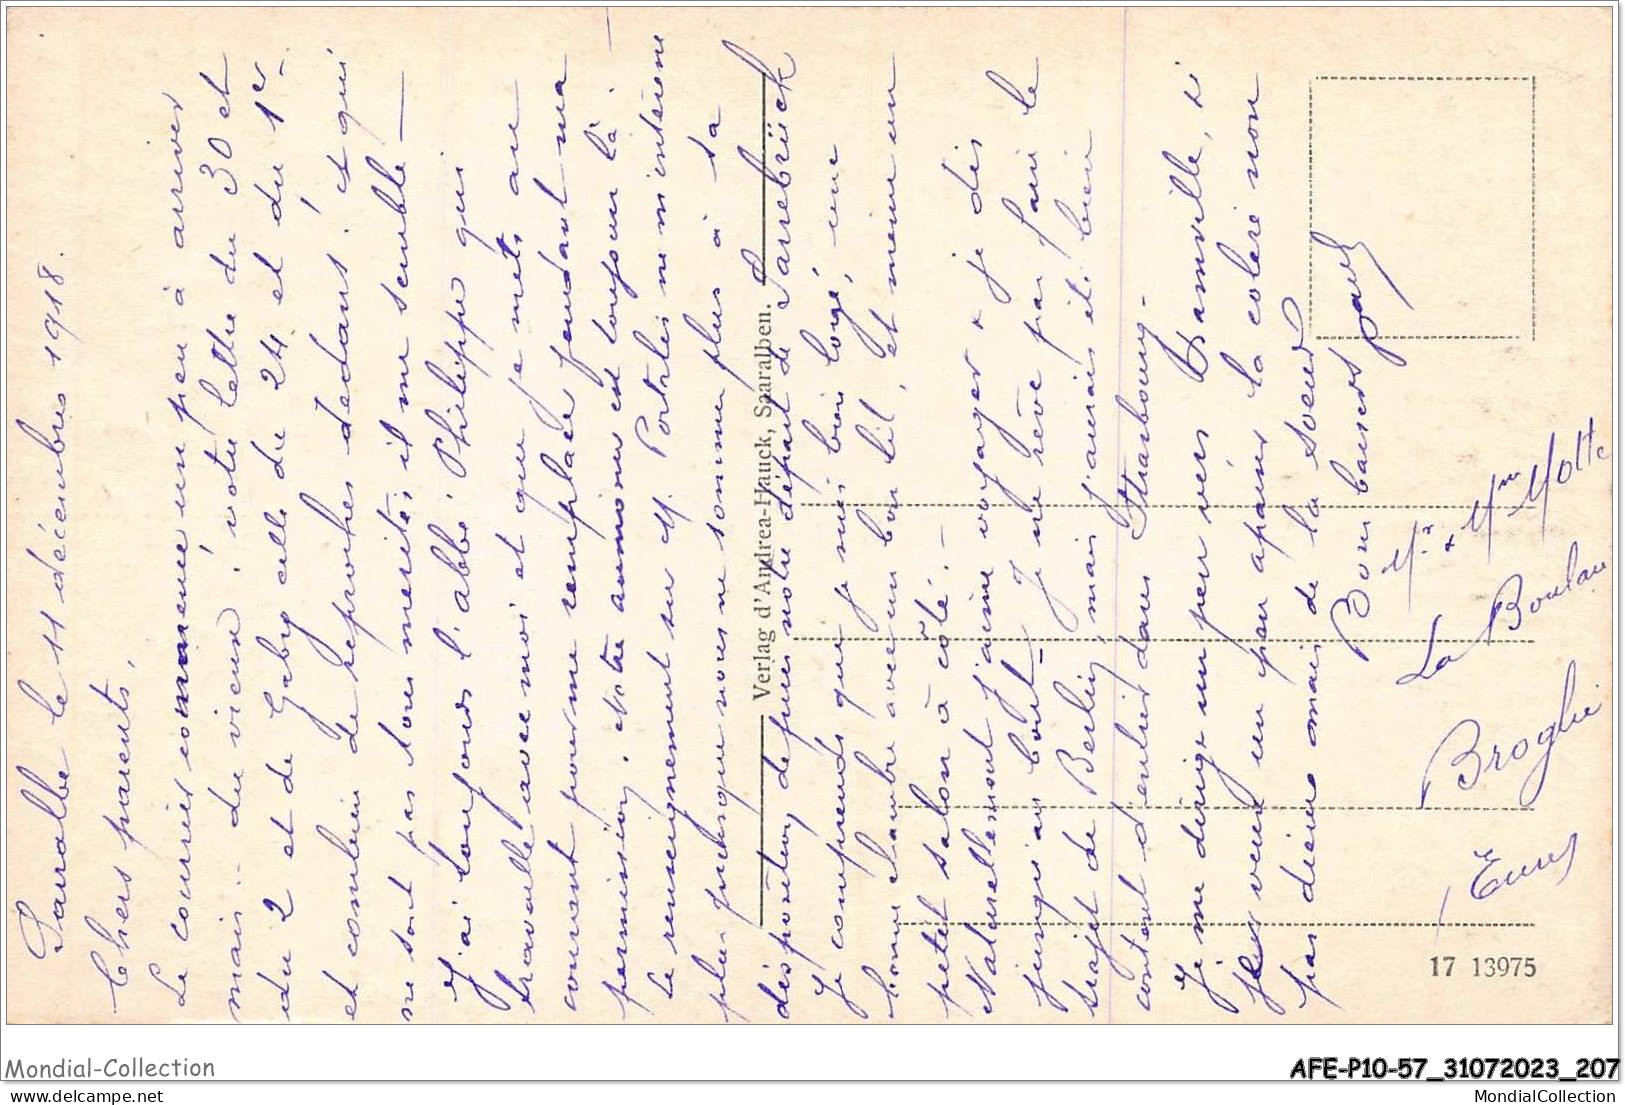 Sarralbe le 11 décembre 1918.
Chers parents,
Le courrier commence un peu à arriver
mais du vieux, votre lettre du 30 et
du 2 et de Gaby celle du 24 et du 1er
et combien de reproches dedans, et qui
ne sont pas tous mérités il me semble —
J'ai toujours l'abbé Philippe qui
travaille avec moi et que je mets au
courant pour me remplacer pendant ma
permission, notre aumônier est toujours là.
Le renseignement sur M. Portales ne m'intéresse
plus puisque nous ne sommes plus à sa
disposition, depuis notre départ de Sarrebrück
Je comprends que je suis bien logé, une
bonne chambre avec un bon lit, et même un
petit salon à côté. —
Naturellement j'aime voyager & je dis
jusqu'au bout — Je ne rêve pas faire le
trajet de Berlin, mais j'aurais été bien
content d'entrer dans Strasbourg —
Je me dirige un peu vers Banville, si
je veux un peu apaiser la colère non
pas dieux mais de la Soeur
Bons baisers
Paul
Mr & Mme Motte
La Boulau
Broglie
Eure
Verlag d'Andrea-Hauck, Saaralben.
17 13975
Mondial-Collection
AFE-P10-57_31072023_207
www.mondial-collection.com
MondialCollection